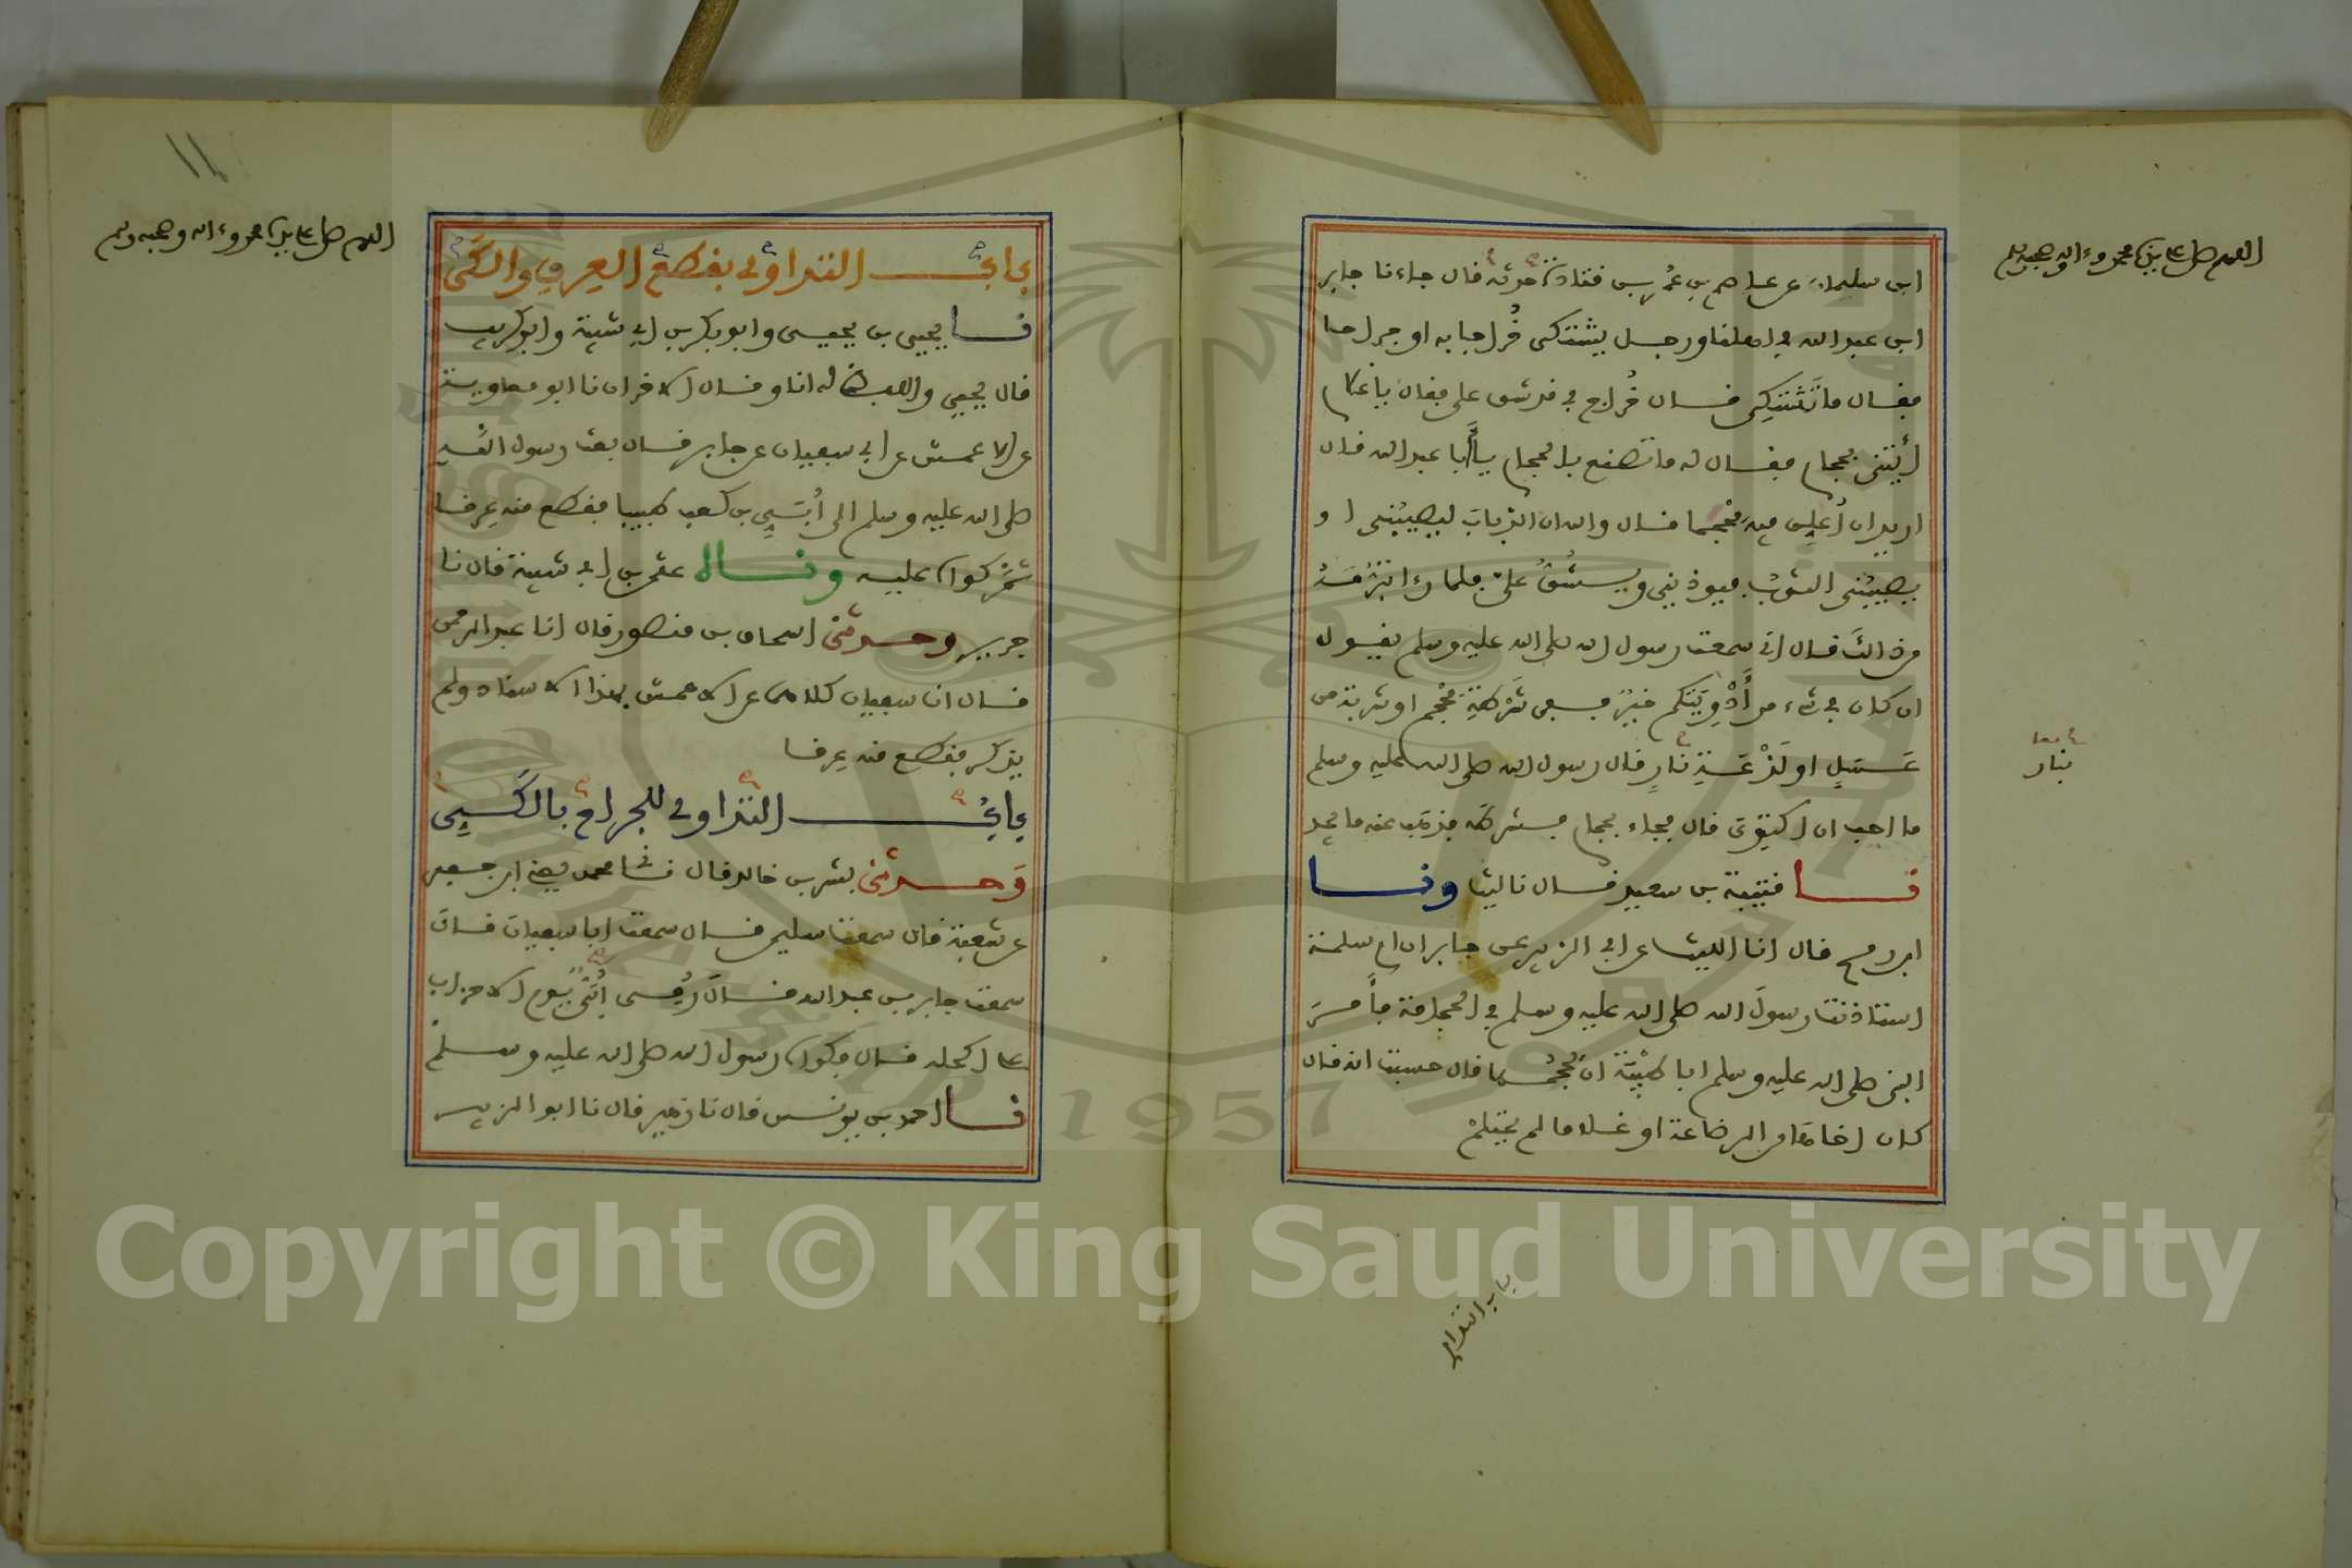 اللهم صل على سيدنا محمد وءاله وصحبه وسلم
ابن سليمان عن عاصم بن عمر بن قتادة حدثه قال جاءنا جابر
ابن عبد الله في اهلنا ورجل يشتكى خُراجا به او جراحا
فقال ما تَشتكِى قال خُراج في قد شق علي فقال يا غلام
ايتنى بحجام فقال له ما تصنع بالحجام يا أبا عبد الله قال
اريد ان أعلق فيه مِحْجما قال والله ان الذباب ليصيبُنى او
يصيبُنى الثوبُ فيوذينى ويشقُّ عليّ فلما رءا تبرُّمَهُ
من ذالك قال انى سمعت رسول الله صلى الله عليه وسلم يقول
ان كان في شىء من أدْوِيَتكم خيرٌ ففى شَرطَةِ مِحْجم او شربة من
عَسَلٍ او لَذْعَةِ نَارٍ قال رسول الله صلى الله عليه وسلم
بنار
ما احب ان اكتوى قال فجاء بحجام فشرطه فذهب عنه ما يجد
نا قتيبة بن سعيد قال نا ليث ونا
ابن رمح قال انا الليث عن ابى الزبير عن جابر ان ام سلمة
استاذنت رسولَ الله صلى الله عليه وسلم في الحجامة فأمَرَ
النبى صلى الله عليه وسلم ابا طَيْبَة ان يَحْجُمها قال حسبت انه قال
كان اخاها من الرضاعة او غلاما لم يحتلمْ
باب التداوى
١١
اللهم صل على سيدنا محمد وءاله وصحبه وسلم
بابُ التداوى بقطع العِرقِ والكَىّ
نا يحيى بن يحيى وابو بكر بن ابى شيبة وابو كريب
قال يحيى واللفظ له انا وقال الاخران نا ابو معاوية
عن الاعمش عن ابى سفيان عن جابر قال بعث رسول الله
صلى الله عليه وسلم الى أُبَيِّ بن كعب طبيبا فقطع منه عِرقا
ثمّ كواه عليه ونا عثمن بن ابى شيبة قال نا
جرير وحدثنى اسحاق بن منصور قال انا عبد الرحمن
قال انا سفيان كلاهما عن الاعمش بهذا الاسناد ولم
يذكر فقطع منه عِرقا
بابُ التداوى للجراح بالكَيِّ
وَحدثنى بشر بن خالد قال نا محمد يعنى ابن جعفر
عن شعبة قال سمعت سليمن قال سمعت ابا سفيان قال
سمعت جابر بن عبد الله قال رُمِى أُبَيٌّ يوم الاحزاب
على اكحله قال فكواه رسول الله صلى الله عليه وسلم
نا احمد بن يونس قال نا زهير قال نا ابو الزبير
Copyright © King Saud University
1957